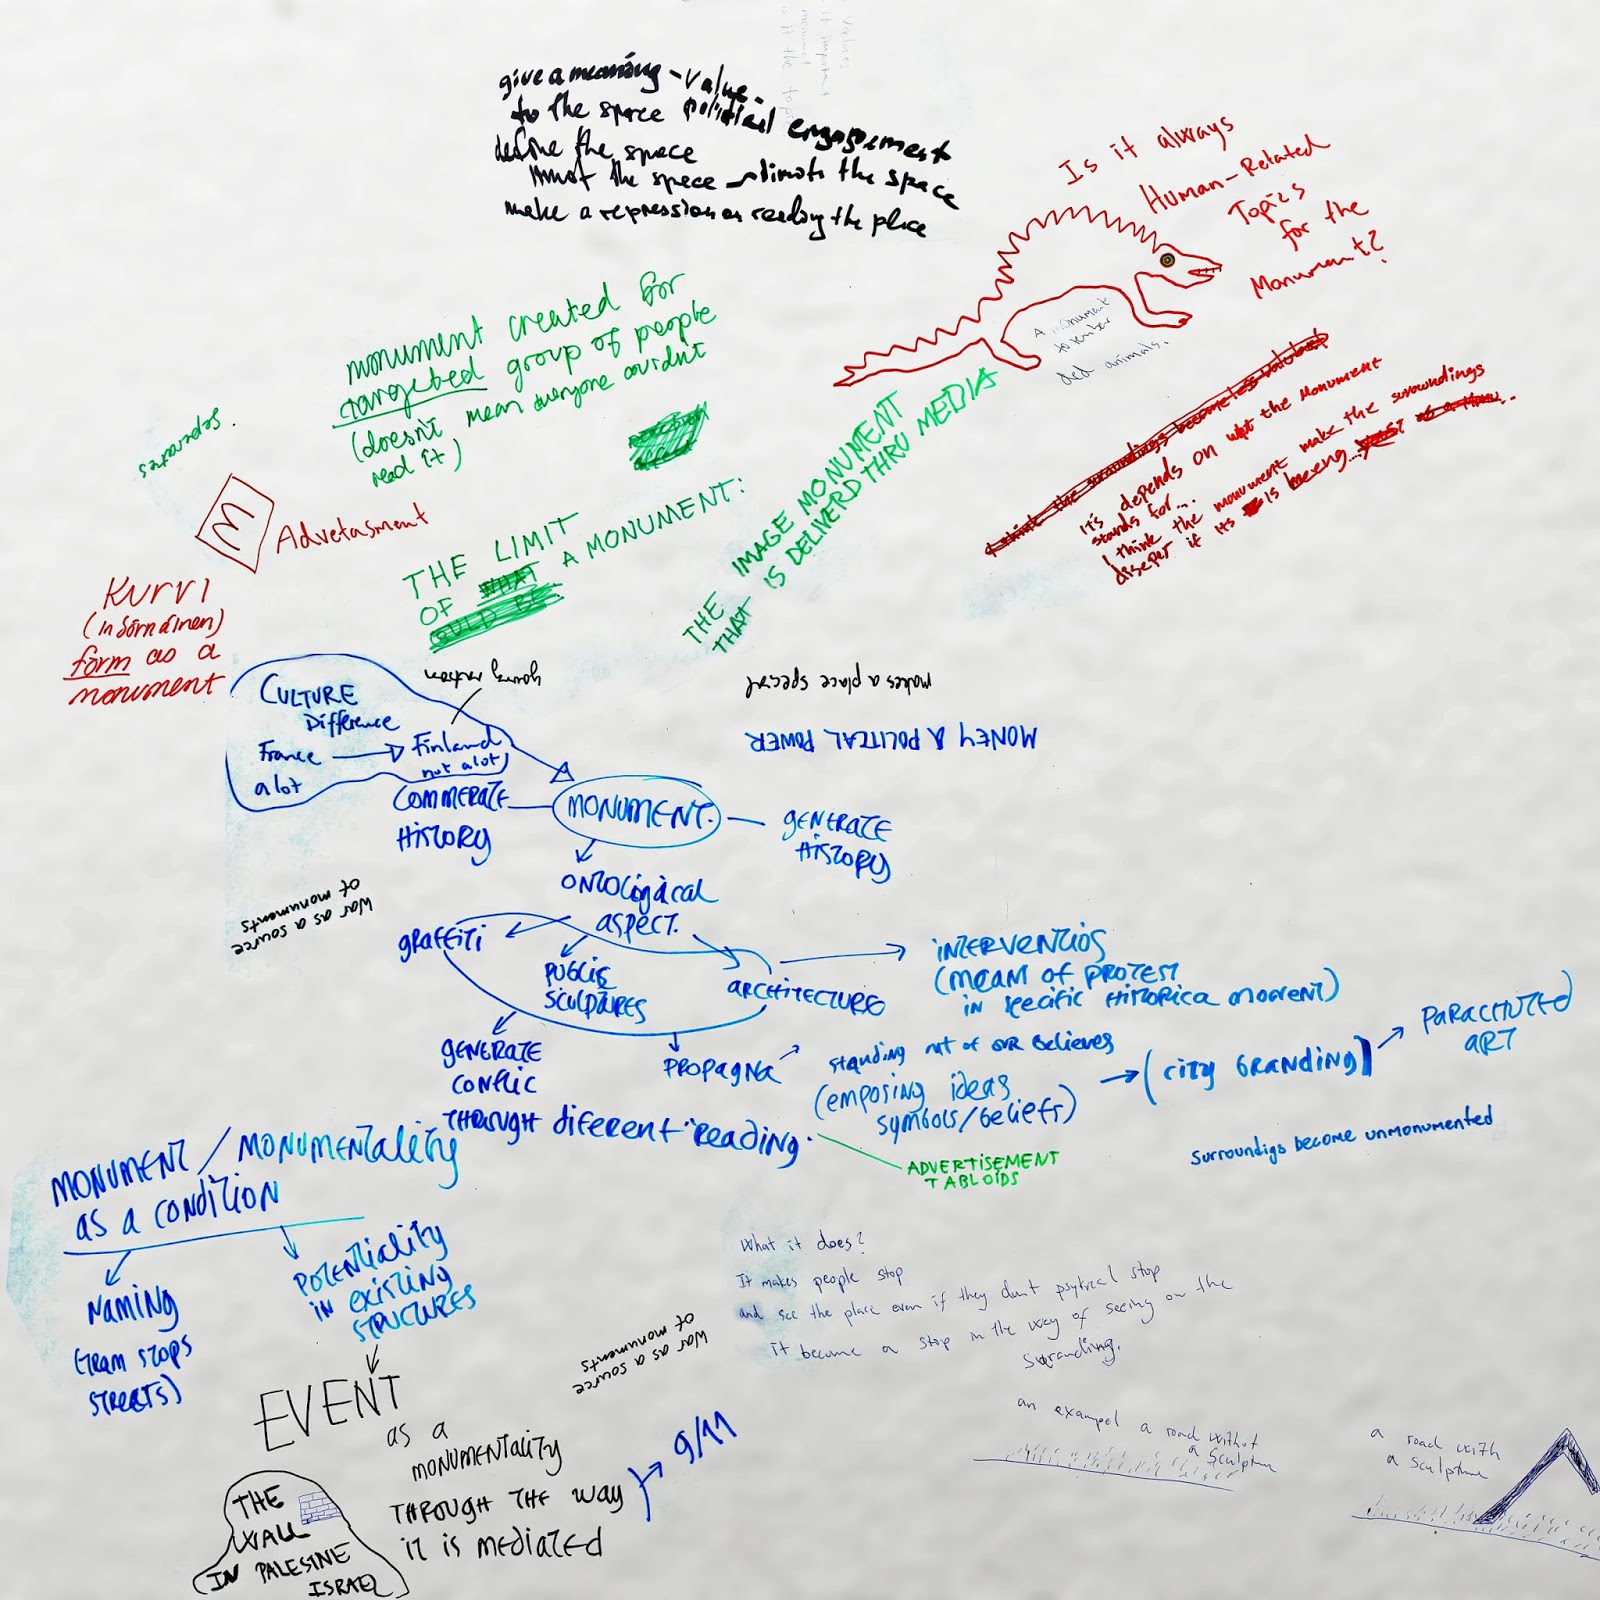 give a meaning - value.
to the space political engagement
define the space
the space limits the space
make a repression on reading the place
Is it always
Human-Related
Topics
for the
Monument?
A monument
animals.
monument created for
targeted group of people
(doesn't mean everyone couldn't
read it)
separates.
M
Advetasment
THE LIMIT
OF WHAT A MONUMENT:
COULD BE
THE IMAGE MONUMENT
THAT IS DELIVERD THRU MEDIA
I think the surroundings becomes less valubel
it's depends on what the Monument
stands for...
I think the monument make the suroundings
diseper if its is
Kurvi
(in Sörnäinen)
form as a
monument
CULTURE
Difference
France → Finland
a lot
not a lot)
makes a place special
MONEY & POLITICAL POWER
COMMERATE
HISTORY
MONUMENT.
GENERATE
HISTORY
ONTOLOGICAL
ASPECT.
war as a source
of monuments
graffiti
PUBLIC
SCULPTURES
ARCHITECTURE
INTERVENTIOS
(MEAN OF PROTEST
in specific HISTORICA moment)
GENERATE
CONFLIC
THROUGH diferent reading.
PROPAGNA
standing out of our believes
(emposing ideas
symbols/beliefs)
(city branding)
PARACHUTED
ART
ADVERTISEMENT
TABLOIDS
Surroundigs become unmonumented
MONUMENT / MONUMENTALITY
as a CONDITION
NAMING
(tram stops
streets)
POTENTIALITY
IN EXISTING
STRUCTURES
What it does?
It makes people stop
and see the place even if they dont psyhical stop
it become a stop in the way of seeing on the
suranding.
war as a source
of monuments
EVENT
as a
MONUMENTALITY
THROUGH THE way
it is mediated
9/11
THE
WALL
IN PALESINE
ISRAEL
an exampel a road without
a sculpture
a road with
a sculpture